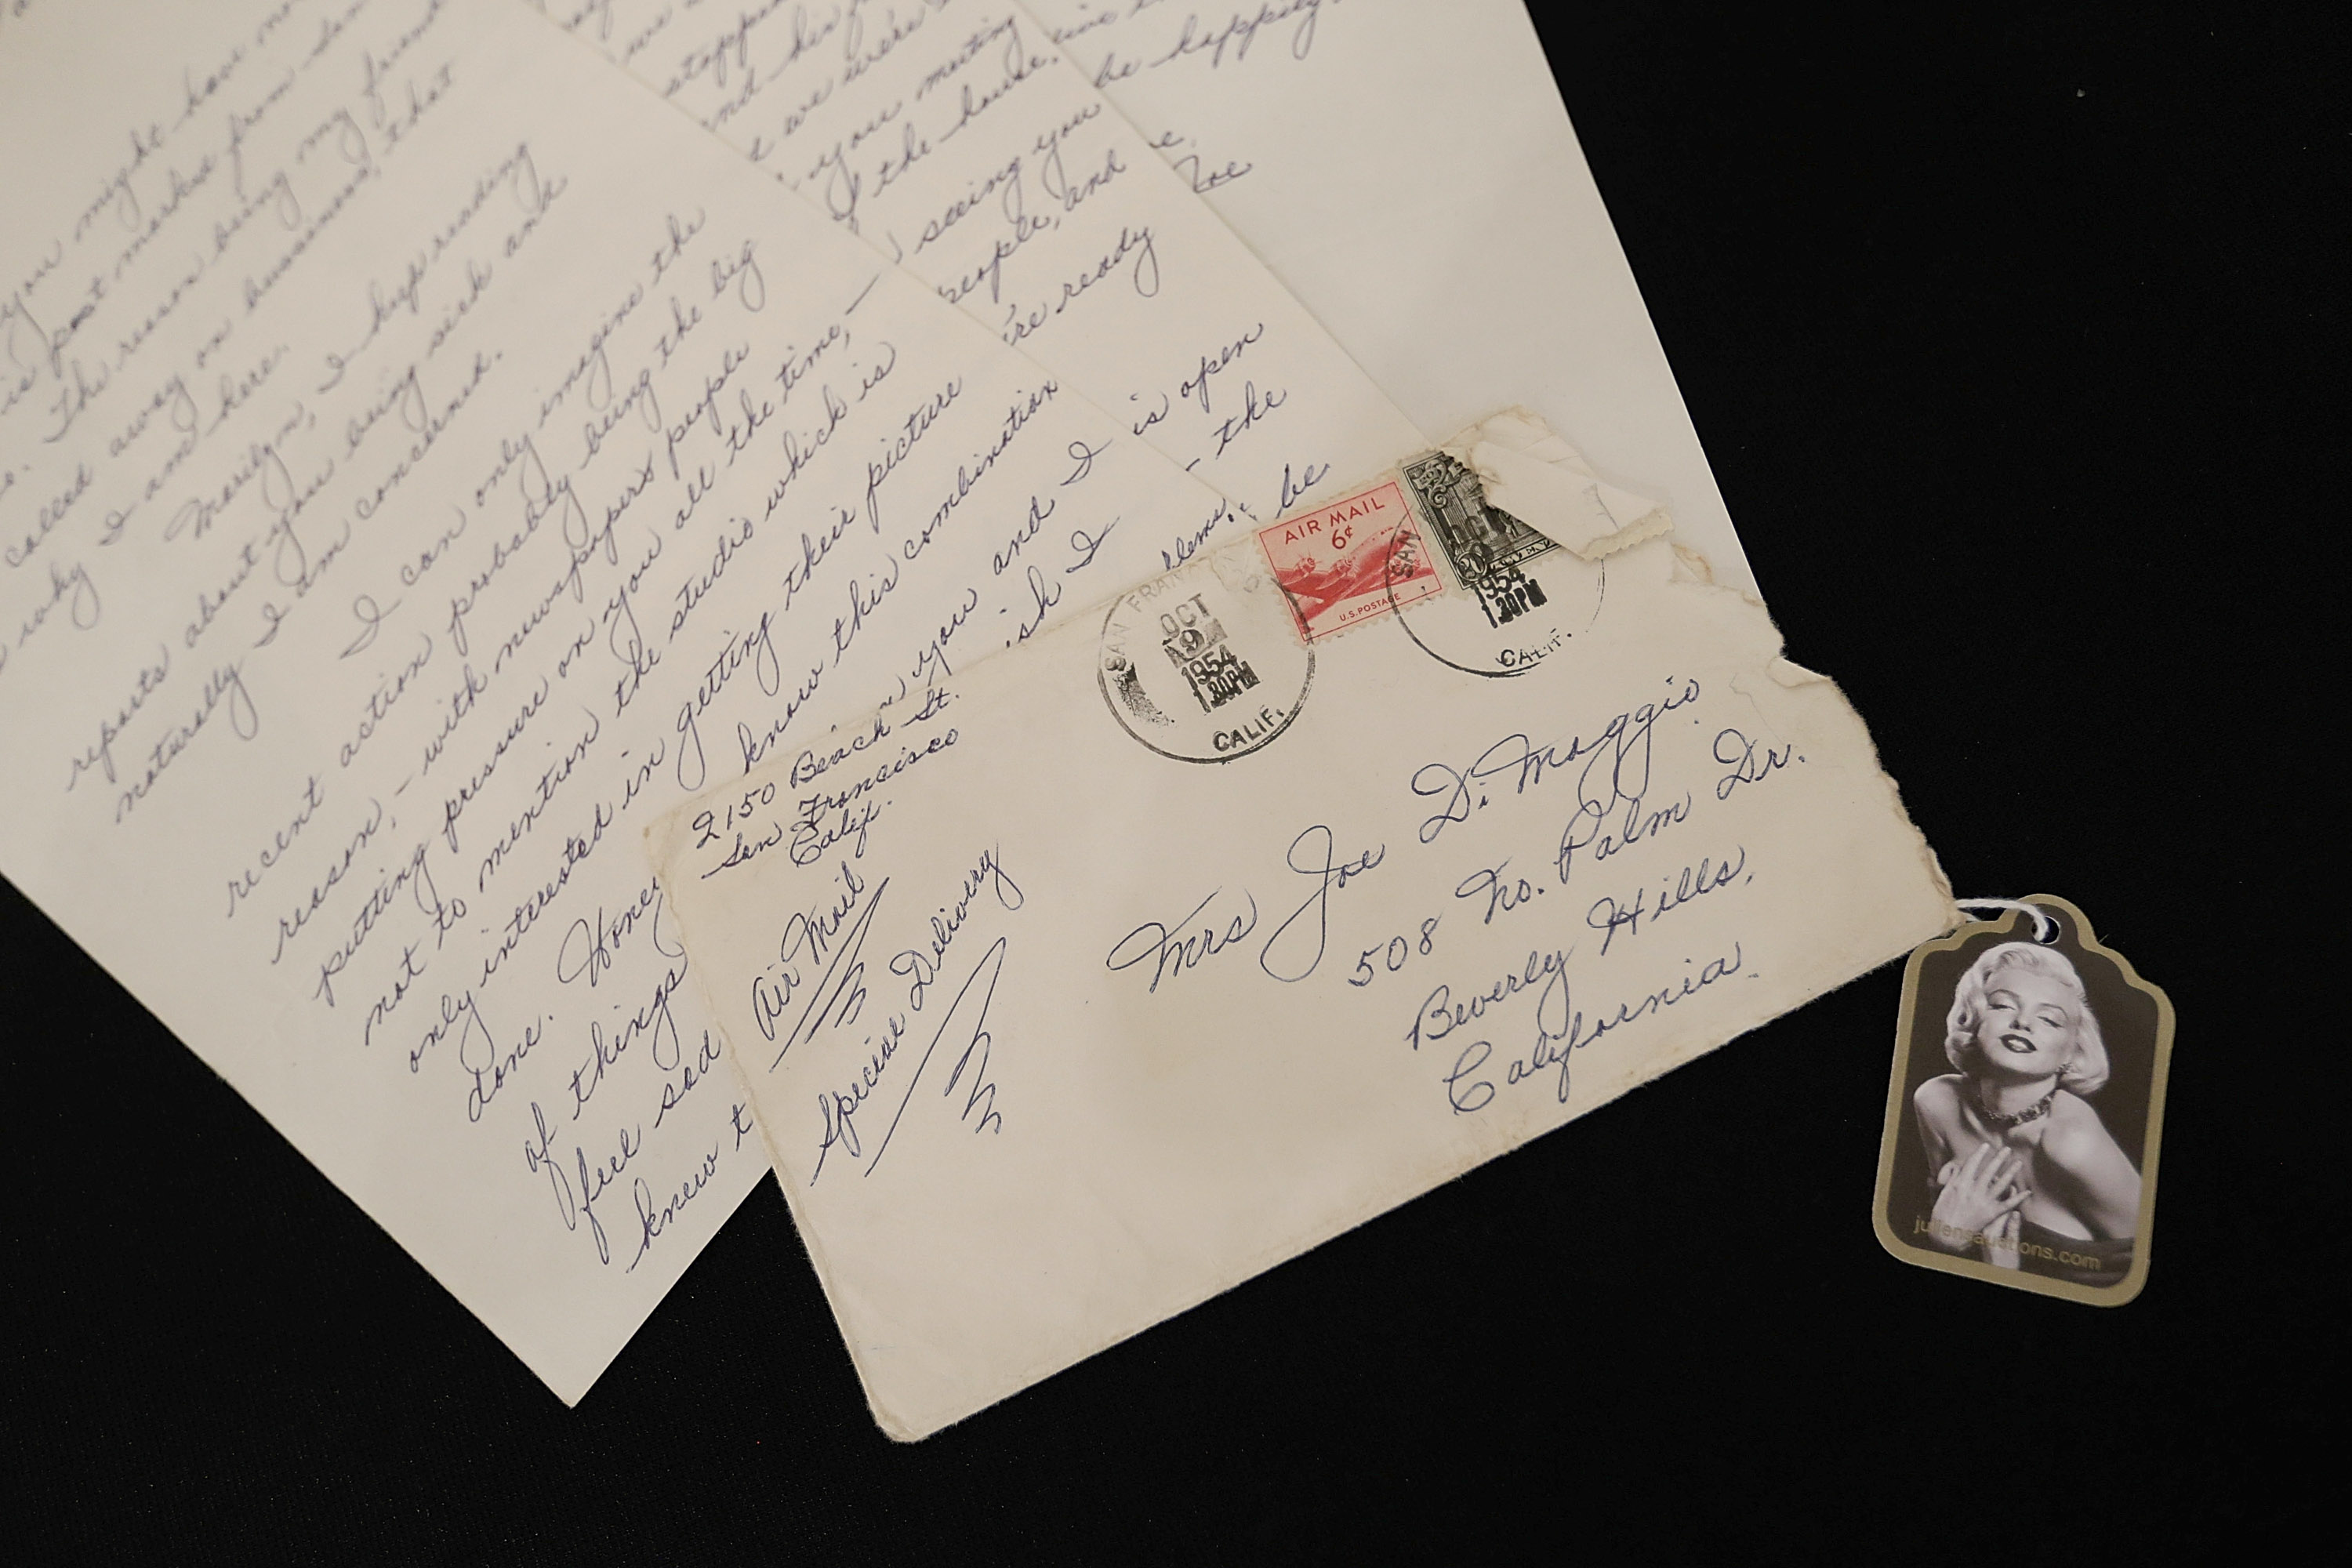 you might have no
is post marked from San
. The reason being my friend
called away on business, that
why I am here.
Marilyn, I keep reading
reports about you being sick and
naturally I am concerned.
I can only imagine the
recent action probably being the big
reason, - with newspapers people
putting pressure on you all the time, -
not to mention the studio which is
only interested in getting their picture
done. Honey know this combination
of things
feel sad
knew t
stoppe
and his
t we were
you meeting
the house.
seeing you
people, and
're ready
you and I is open
ish I - the
blems. be
be happily
e.
Joe
2150 Beach St.
San Francisco
Calif.
Air Mail
Special Delivery
SAN FRAN
OCT
9
1954
1 30PM
CALIF.
AIR MAIL
6¢
U.S. POSTAGE
SAN
OCT
20
1954
1 30PM
CALIF.
Mrs Joe Di Maggio
508 No. Palm Dr.
Beverly Hills,
California.
juliensauctions.com